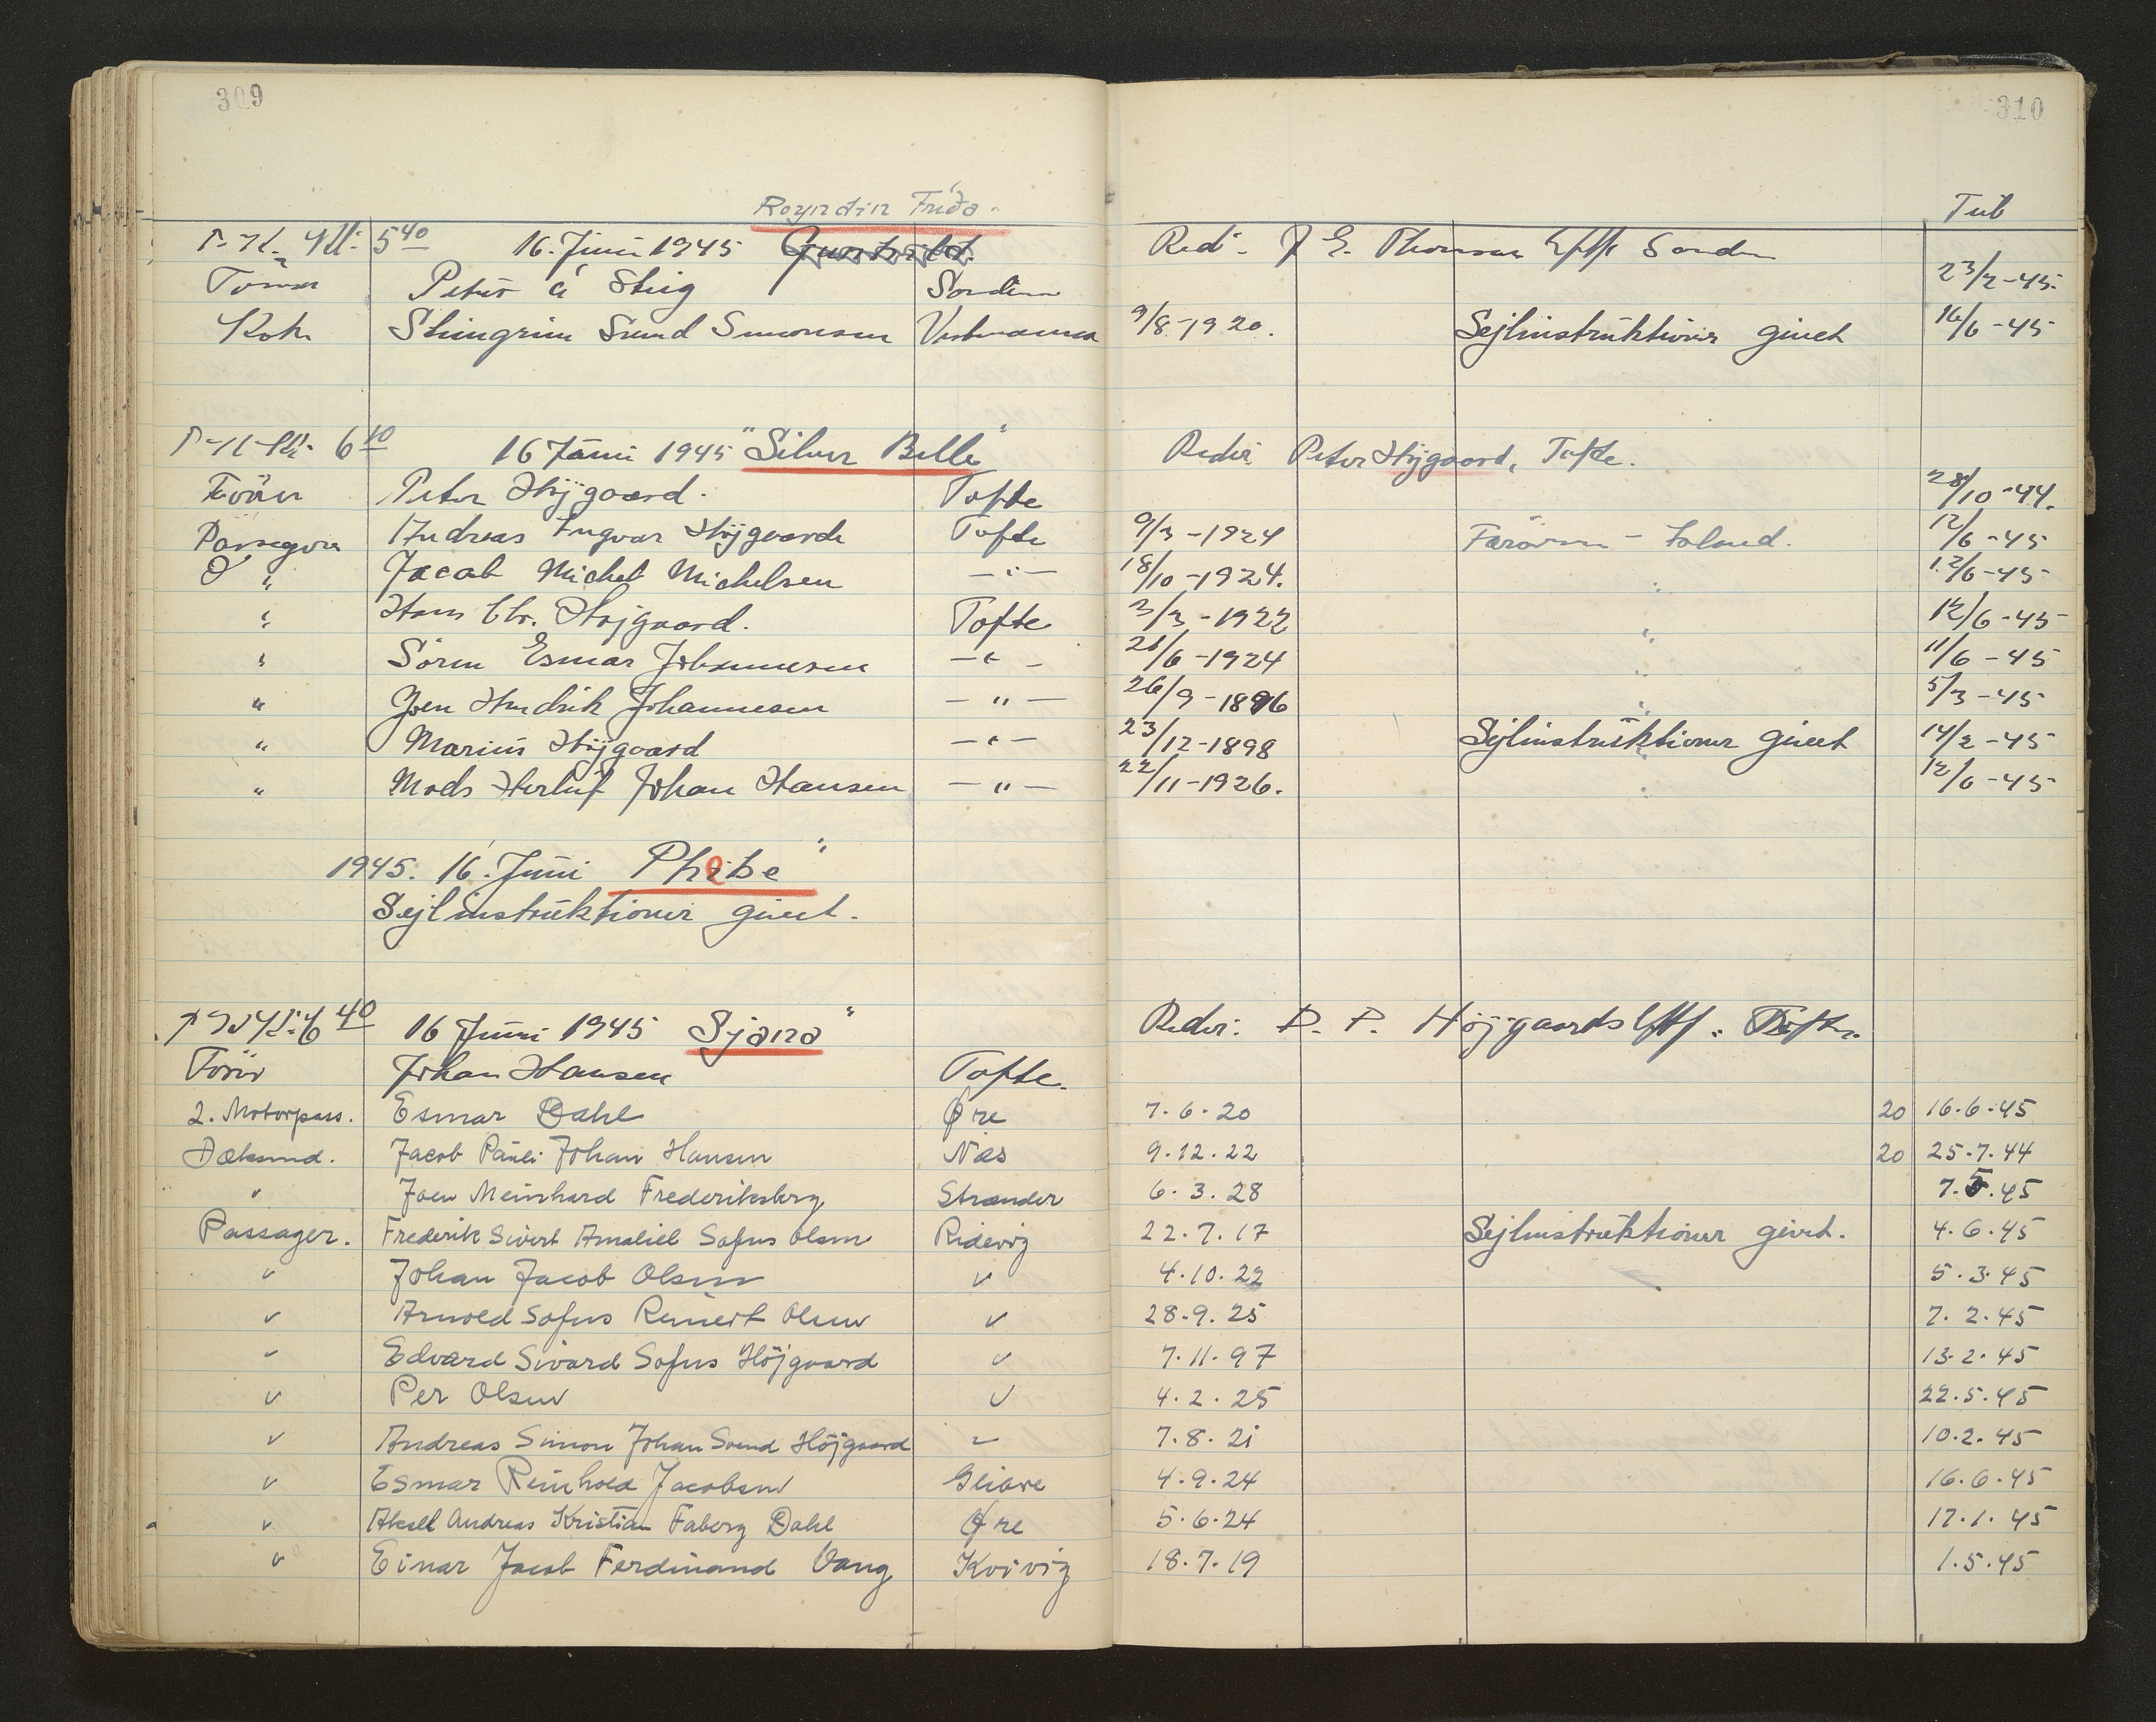 309
310
Royndin Fríða.
Tub
5 40 16. Juni 1945 Red. E. Thomsen Eftf. Sanden
Förer Petur á Steig Sanden 23/2-45.
Kok Steingrim Sund Simonsen Vestmanna 9/8-1920. Sejlinstruktioner givet 16/6-45
6 10 16 Juni 1945 "Silver Belle" Reder Peter Højgaard, Tofte.
Förer Peter Højgaard. Tofte 28/10-44.
Passagerer Andreas Ingvar Højgaard Tofte 9/3-1924 Færøerne - Island. 12/6-45
" Jacob Michel Michelsen -"- 18/10-1924. " 12/6-45
" Hans Chr. Højgaard. Tofte 3/3-1922 " 12/6-45
" Sören Esmar Johannesen -"- 21/6-1924 " 11/6-45
" Joen Hendrik Johannesen -"- 26/9-1896 " 5/3-45
" Marius Højgaard -"- 23/12-1898 Sejlinstruktioner givet 14/2-45
" Mads Herluf Johan Hansen -"- 22/11-1926. " 12/6-45
1945. 16. Juni Phebe"
Sejlinstruktioner givet.
6 40 16 Juni 1945 Sjana" Reder: D. P. Højgaards Eftf. Tofte.
Förer Johan Hansen Tofte.
2. Motorpass. Esmar Dahl Øre 7.6.20 20 16.6.45
Dæksmd. Jacob Pauli Johan Hansen Næs 9.12.22 20 25.7.44
" Joen Meinhard Frederiksberg Strænder 6.3.28 7.5.45
Passager. Frederik Sivert Amaliel Sofus Olsen Ridevig 22.7.17 Sejlinstruktioner givet. 4.6.45
" Johan Jacob Olsen " 4.10.22 5.3.45
" Arnold Sofus Reinert Olsen " 28.9.25 7.2.45
" Edvard Sivard Sofus Højgaard " 7.11.97 13.2.45
" Per Olsen " 4.2.25 22.5.45
" Andreas Simon Johan Svend Højgaard " 7.8.21 10.2.45
" Esmar Reinhold Jacobsen Glibre 4.9.24 16.6.45
" Aksel Andreas Kristian Faberg Dahl Øre 5.6.24 17.1.45
" Einar Jacob Ferdinand Vang Kvivig 18.7.19 1.5.45